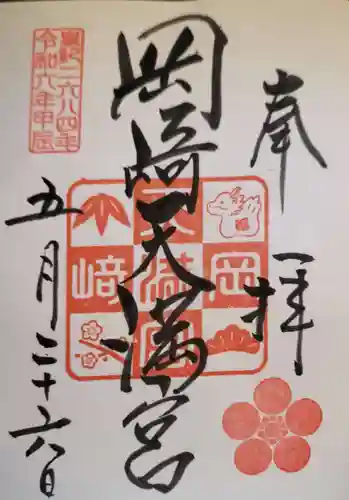 奉拝
岡崎天満宮
五月二十六日
皇紀二六八四年
令和六年甲辰
岡
崎
天満宮